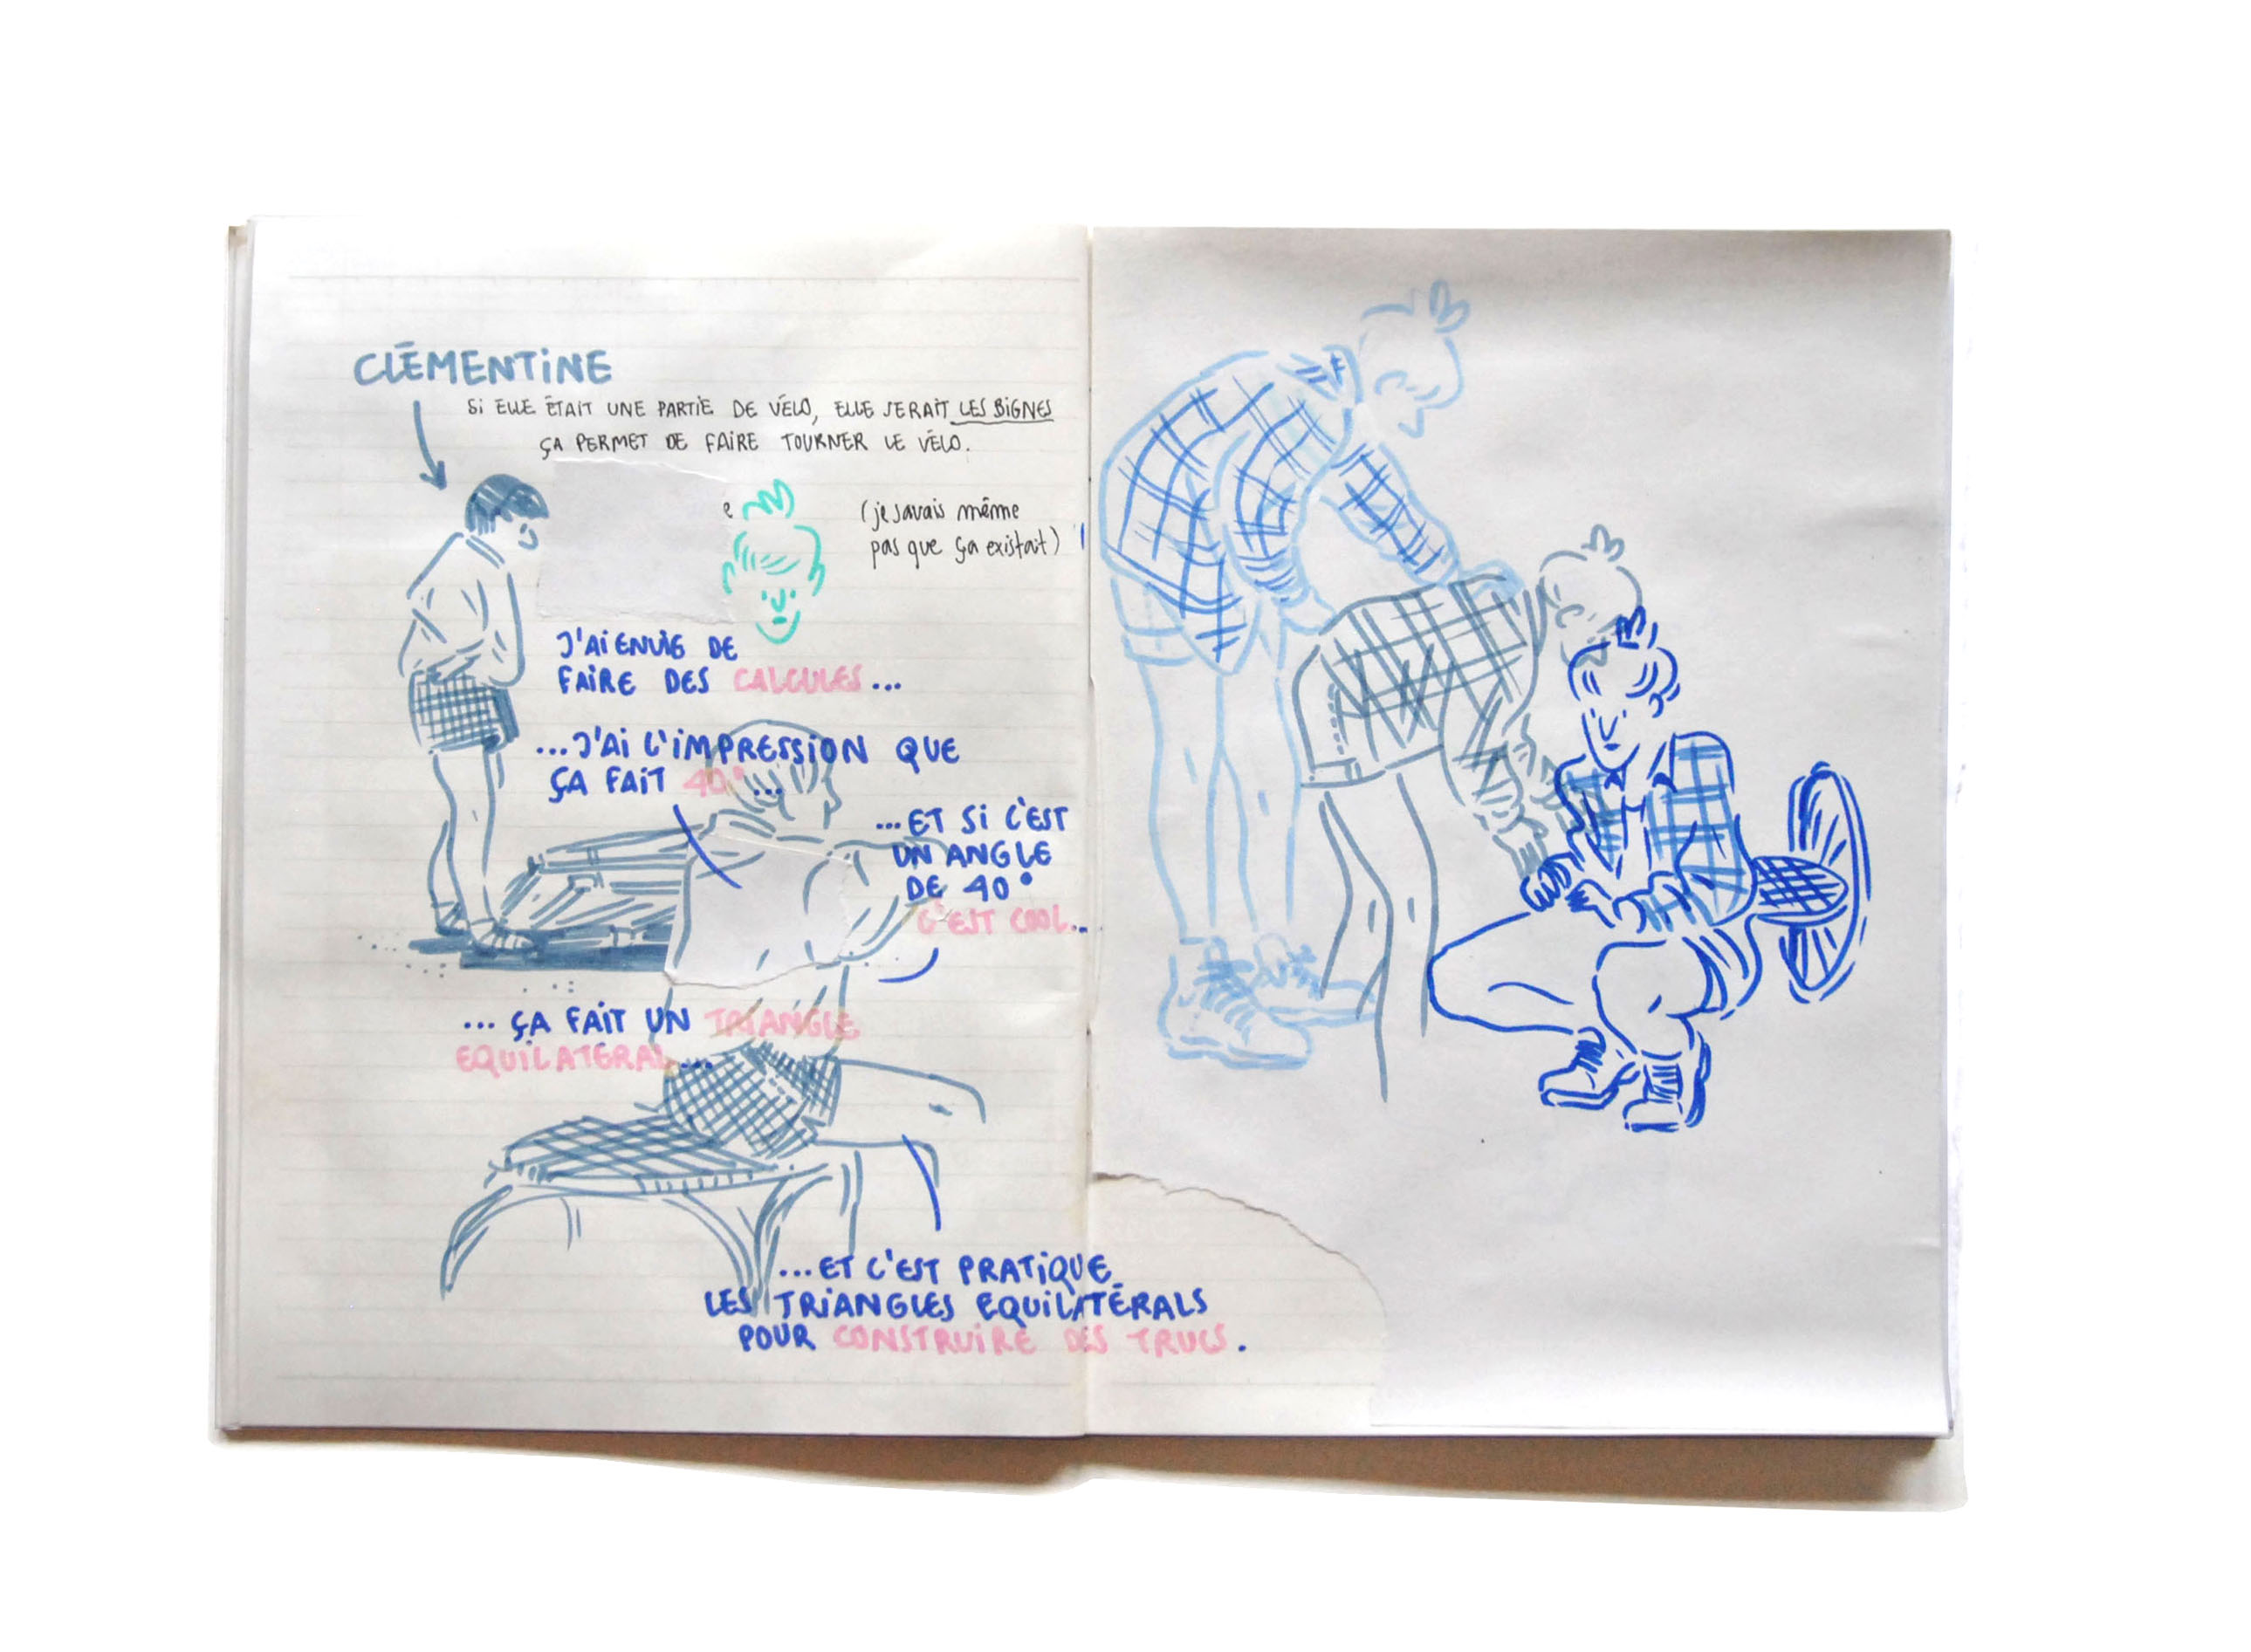 CLÉMENTINE
SI ELLE ÉTAIT UNE PARTIE DE VÉLO, ELLE SERAIT LES BIGNES
ÇA PERMET DE FAIRE TOURNER LE VÉLO.
e
(je savais même
pas que ça existait)
J'AI ENVIE DE
FAIRE DES CALCULES...
...J'AI L'IMPRESSION QUE
ÇA FAIT 40° ...
...ET SI C'EST
UN ANGLE
DE 40°
C'EST COOL...
... ÇA FAIT UN TRIANGLE
EQUILATERAL ...
...ET C'EST PRATIQUE
LES TRIANGLES EQUILATÉRALS
POUR CONSTRUIRE DES TRUCS.